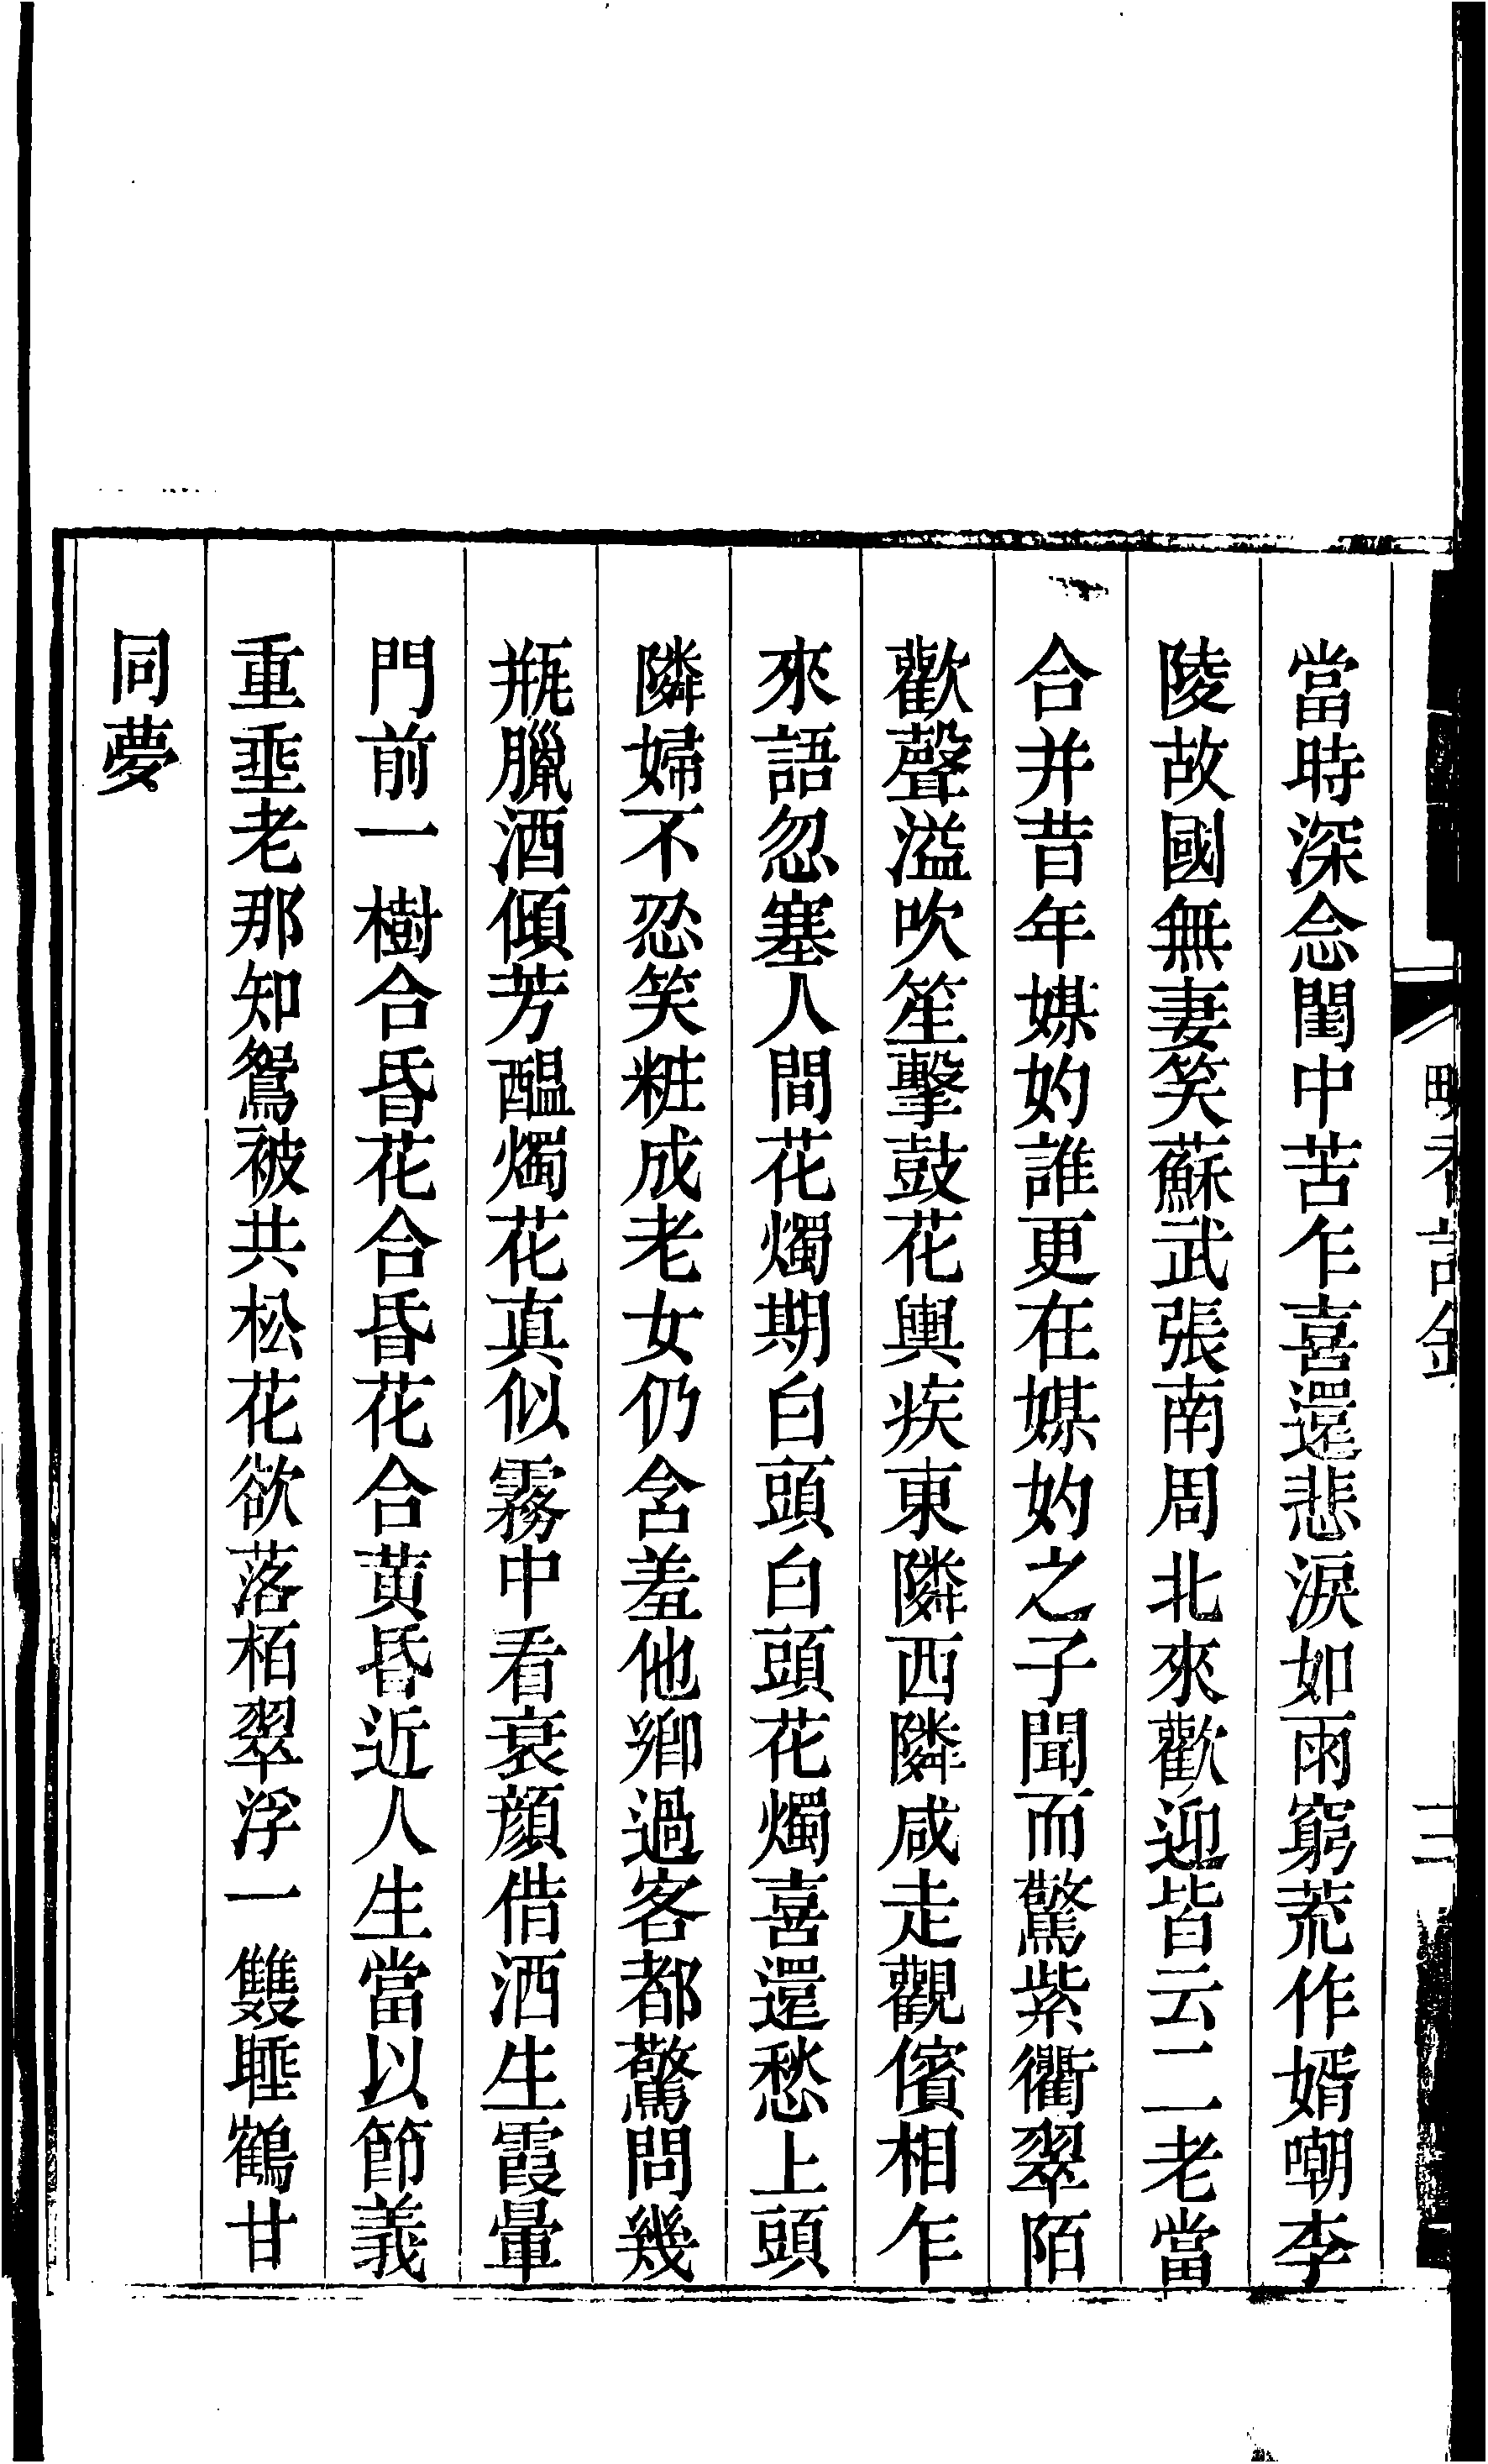 當時深念閨中苦乍喜還悲淚如雨窮荒作婿嘲李
陵故國無妻笑蘇武張南周北來歡迎皆云二老當
合并昔年媒妁誰更在媒妁之子聞而驚紫衢翠陌
歡聲溢吹笙擊鼓花輿疾東隣西隣咸走觀儐相乍
來語忽塞人間花燭期白頭白頭花燭喜還愁上頭
隣婦不忍笑粧成老女仍含羞他鄉過客都驚問幾
瓶臘酒傾芳醖燭花真似霧中看衰顏借酒生霞暈
門前一樹合昏花合昏花合黄昏近人生當以節義
重垂老那知鴛被共松花欲落栢翠浮一雙睡鶴甘
同夢